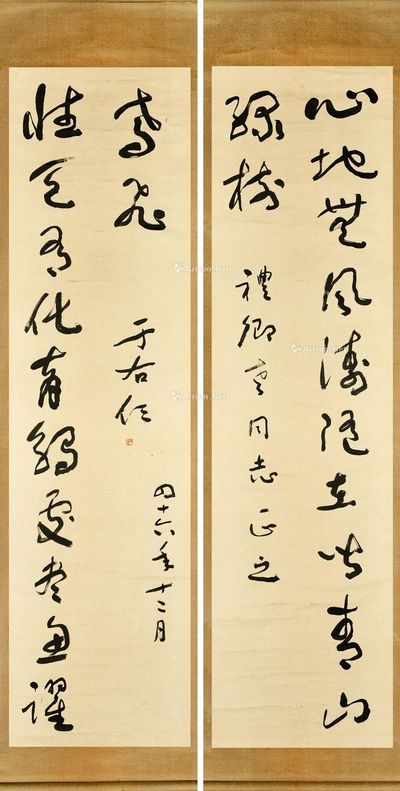 心地無風濤隨在皆青山
綠樹
禮卿老同志正之
性天有化育觸處盡魚躍
鳶飛
于右任
四十六年十二月
Artron.Net
Artron.Net
Artron.Net
Artron.Net